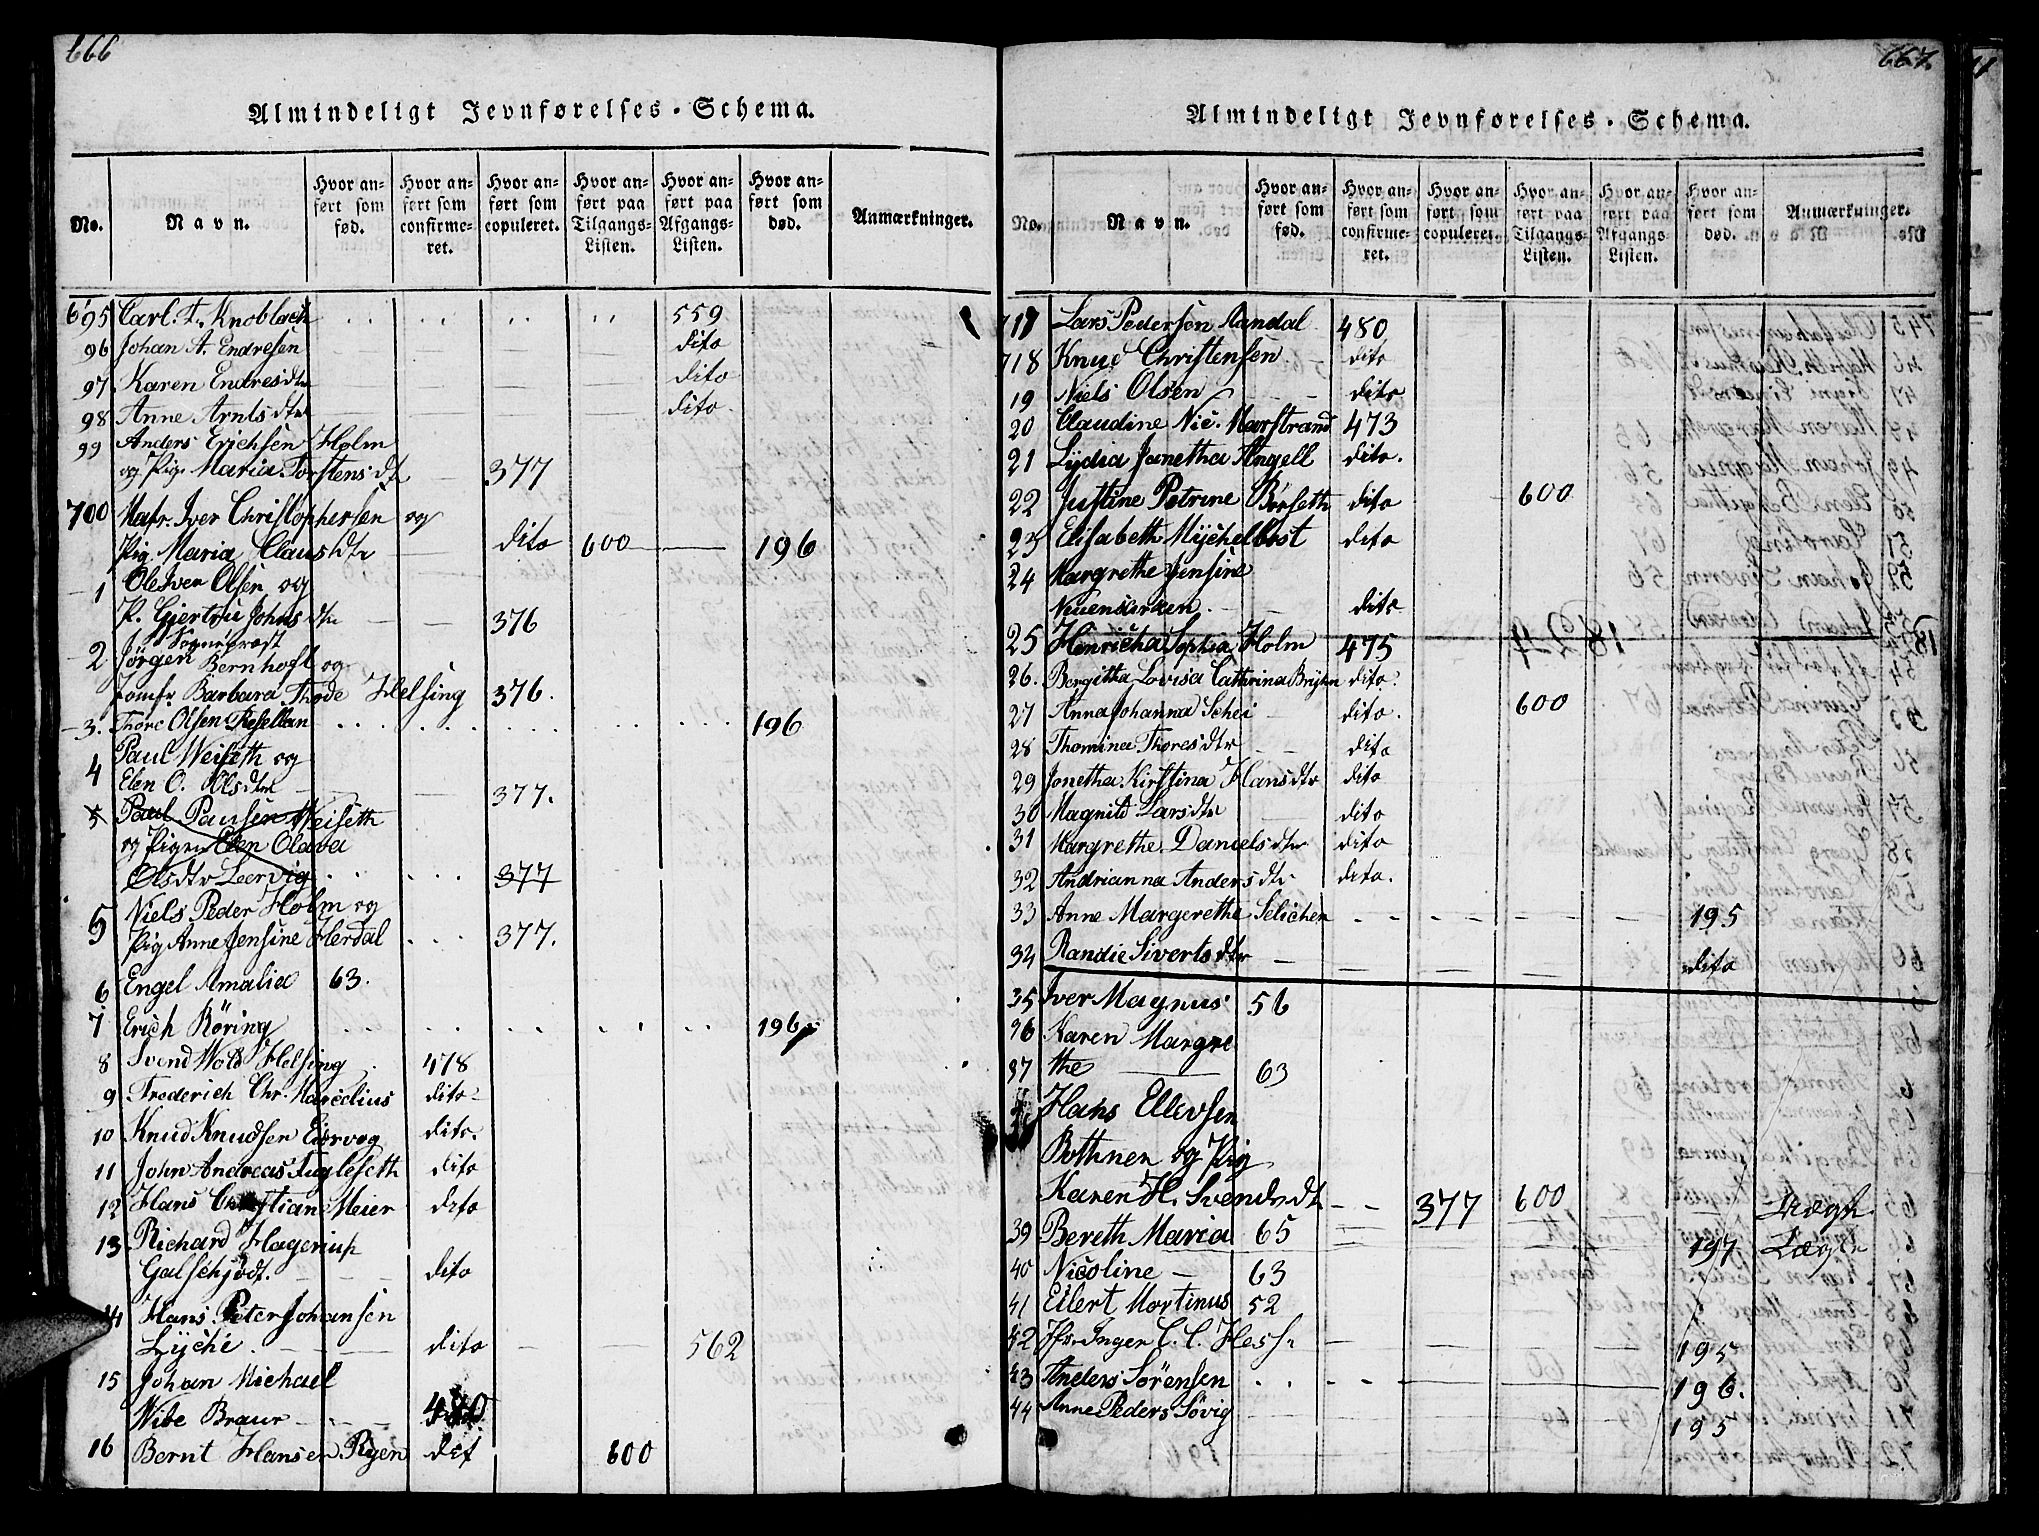 666
Almindeligt Jevnførelses-Schema.
No. Navn. Hvor anført som fød. Hvor anført som confirmeret. Hvor anført som copuleret. Hvor anført paa Tilgangs-Listen. Hvor anført paa Afgangs-Listen. Hvor anført som død. Anmærkninger.
695 Carl. F. Knoblach 559
96 Johan A. Endresen dito
97. Karen Endresdtr dito
98 Anne Arntsdtr dito
99 Anders Erichsen Holm
og Pig. Maria Torstensdt 377
700 Matr. Iver Christophersen og
Pig Maria Clausdtr dito 600 196
1 Ole Iver Olsen og
P. Giertru Johnsdtr 376
2 Sognepræst
Jörgen Bernhoft og
Jomfr Barbara Thode Helsing 376.
3. Thore Olsen Resellan 196
4 Paul Weiseth og
Elen O. Olsdtr 377.
5 Paul Paulsen Weiseth
og Pigen Elen Olava
Olsdtr Leervig 377
5 Niels Peder Holm og
Pig Anne Jensine Herdal 377.
6 Engel Amalia 63.
7 Erich Röring 196
8 Svend Wold Helsing 478
9 Frederich Chr. Marcelius dito
10 Knud Knudsen Eidsvog dito.
11 John Andreas Fugleseth dito
12 Hans Christian Meier dito
13 Richard Hagerup
Galschjödt. dito
14 Hans Peter Johansen
Lyche. dito 562
15 Johan Michael
Wibe Braur 480
16 Bernt Hansen Ryen dit 600
667.
Almindeligt Jevnførelses-Schema.
No. Navn. Hvor anført som fød. Hvor anført som confirmeret. Hvor anført som copuleret. Hvor anført paa Tilgangs-Listen. Hvor anført paa Afgangs-Listen. Hvor anført som død. Anmærkninger.
717 Lars Pedersen Aandal 480
718 Knud Christensen dito
19 Niels Olsen dito
20 Claudine Nic. Marstrand 473
21 Lydia Janetha Angell dito.
22 Justine Petrine Börseth dito 600
23 Elisabeth Mychelbost dito
24 Margrethe Jensine
dito
25 Henricha Sophia Holm 475
26. Bergitha Lovisa Cathrina dito.
27 Anna Johanna Schei dito. 600
28 Thomina Thoresdtr dito
29 Jonetha Kirstina Hansdtr dito
30 Magnild Larsdtr dito
31 Margrethe Danielsdtr dito
32 Andrianna Andersdtr dito.
33 Anne Margerethe Selicher 195
34 Randie Sivertsdtr dito
35 Iver Magnus 56
36 Karen Margre
37 the 63
Hans Ellevsen
Bothnen og Pig
Karen H. Svendsdt. 377 600
39 Bereth Maria 65 197 Lægh
40 Nicoline 63
41 Eilert Martinus 52
42 Jfr. Inger C. C. Hess 195
43 Anders Sörensen 196.
44 Anne Peders Sövig 195